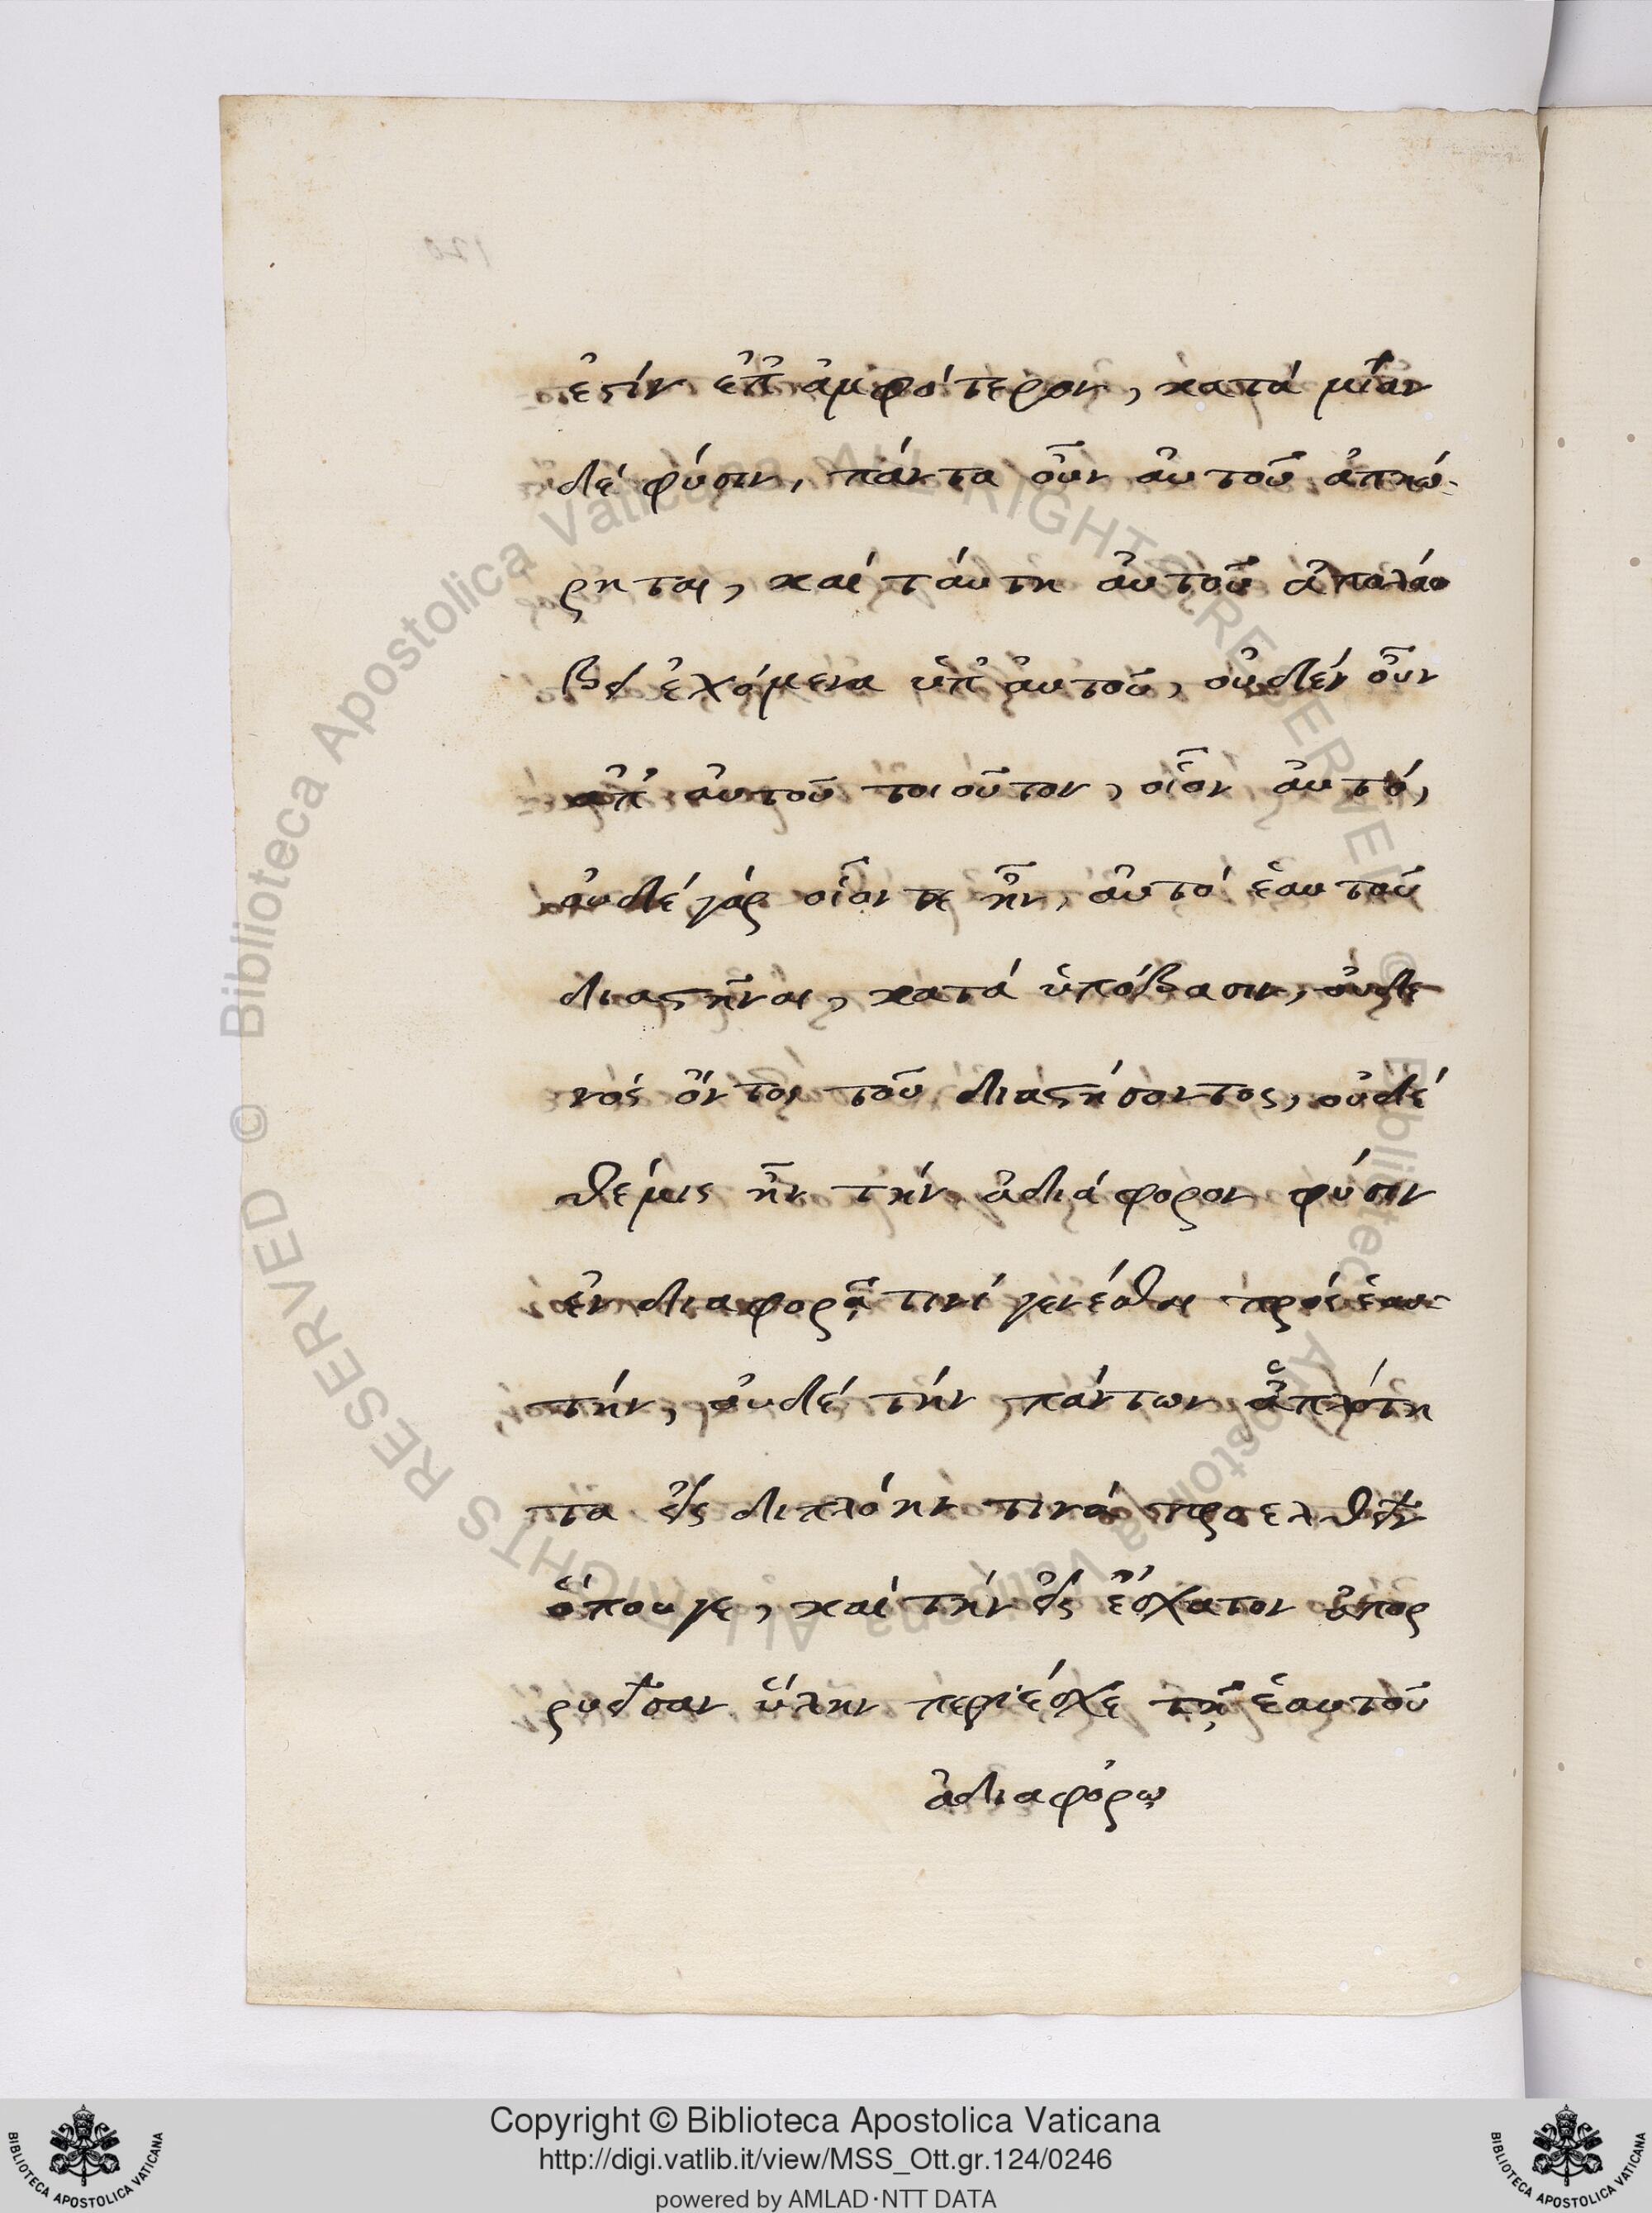 ἐστίν ἐπ' ἀμφότερον, κατά μίαν
δέ φύσιν, πάντα οὖν αὐτοῦ ἀπηώ-
ρηται, καί ταύτη αὐτοῦ ἀπολάυ
βει ἐχόμενα ὑπ' αὐτοῦ, οὐδέν οὖν
ἀπ' αὐτοῦ τοιοῦτον, οἷον αὐτό,
οὐδέ γάρ οἷον τε ἦν, αὐτό ἑαυτοῦ
διαστῆναι, κατά ὑπόβασιν, οὐδε
νός ὄντος τοῦ διαστήσοντος, οὐδέ
θέμις ἦν τήν ἀδιάφορον φύσιν
ἐν διαφορᾷ τινί γενέσθαι πρός ἑαυ-
τήν, οὐδέ τήν πάντων ἁπλότη
τα εἰς διπλόην τινά προελθεῖν
ὅπουγε, καί τήν εἰς ἔσχατον ἀπορ
ρυεῖσαν ὕλην περιέσχε τῇ ἑαυτοῦ
ἀδιαφόρω
120
Copyright © Biblioteca Apostolica Vaticana
http://digi.vatlib.it/view/MSS_Ott.gr.124/0246
powered by AMLAD·NTT DATA
BIBLIOTECA APOSTOLICA VATICANA
BIBLIOTECA APOSTOLICA VATICANA
© Biblioteca Apostolica Vaticana ALL RIGHTS RESERVED
© Biblioteca Apostolica Vaticana ALL RIGHTS RESERVED